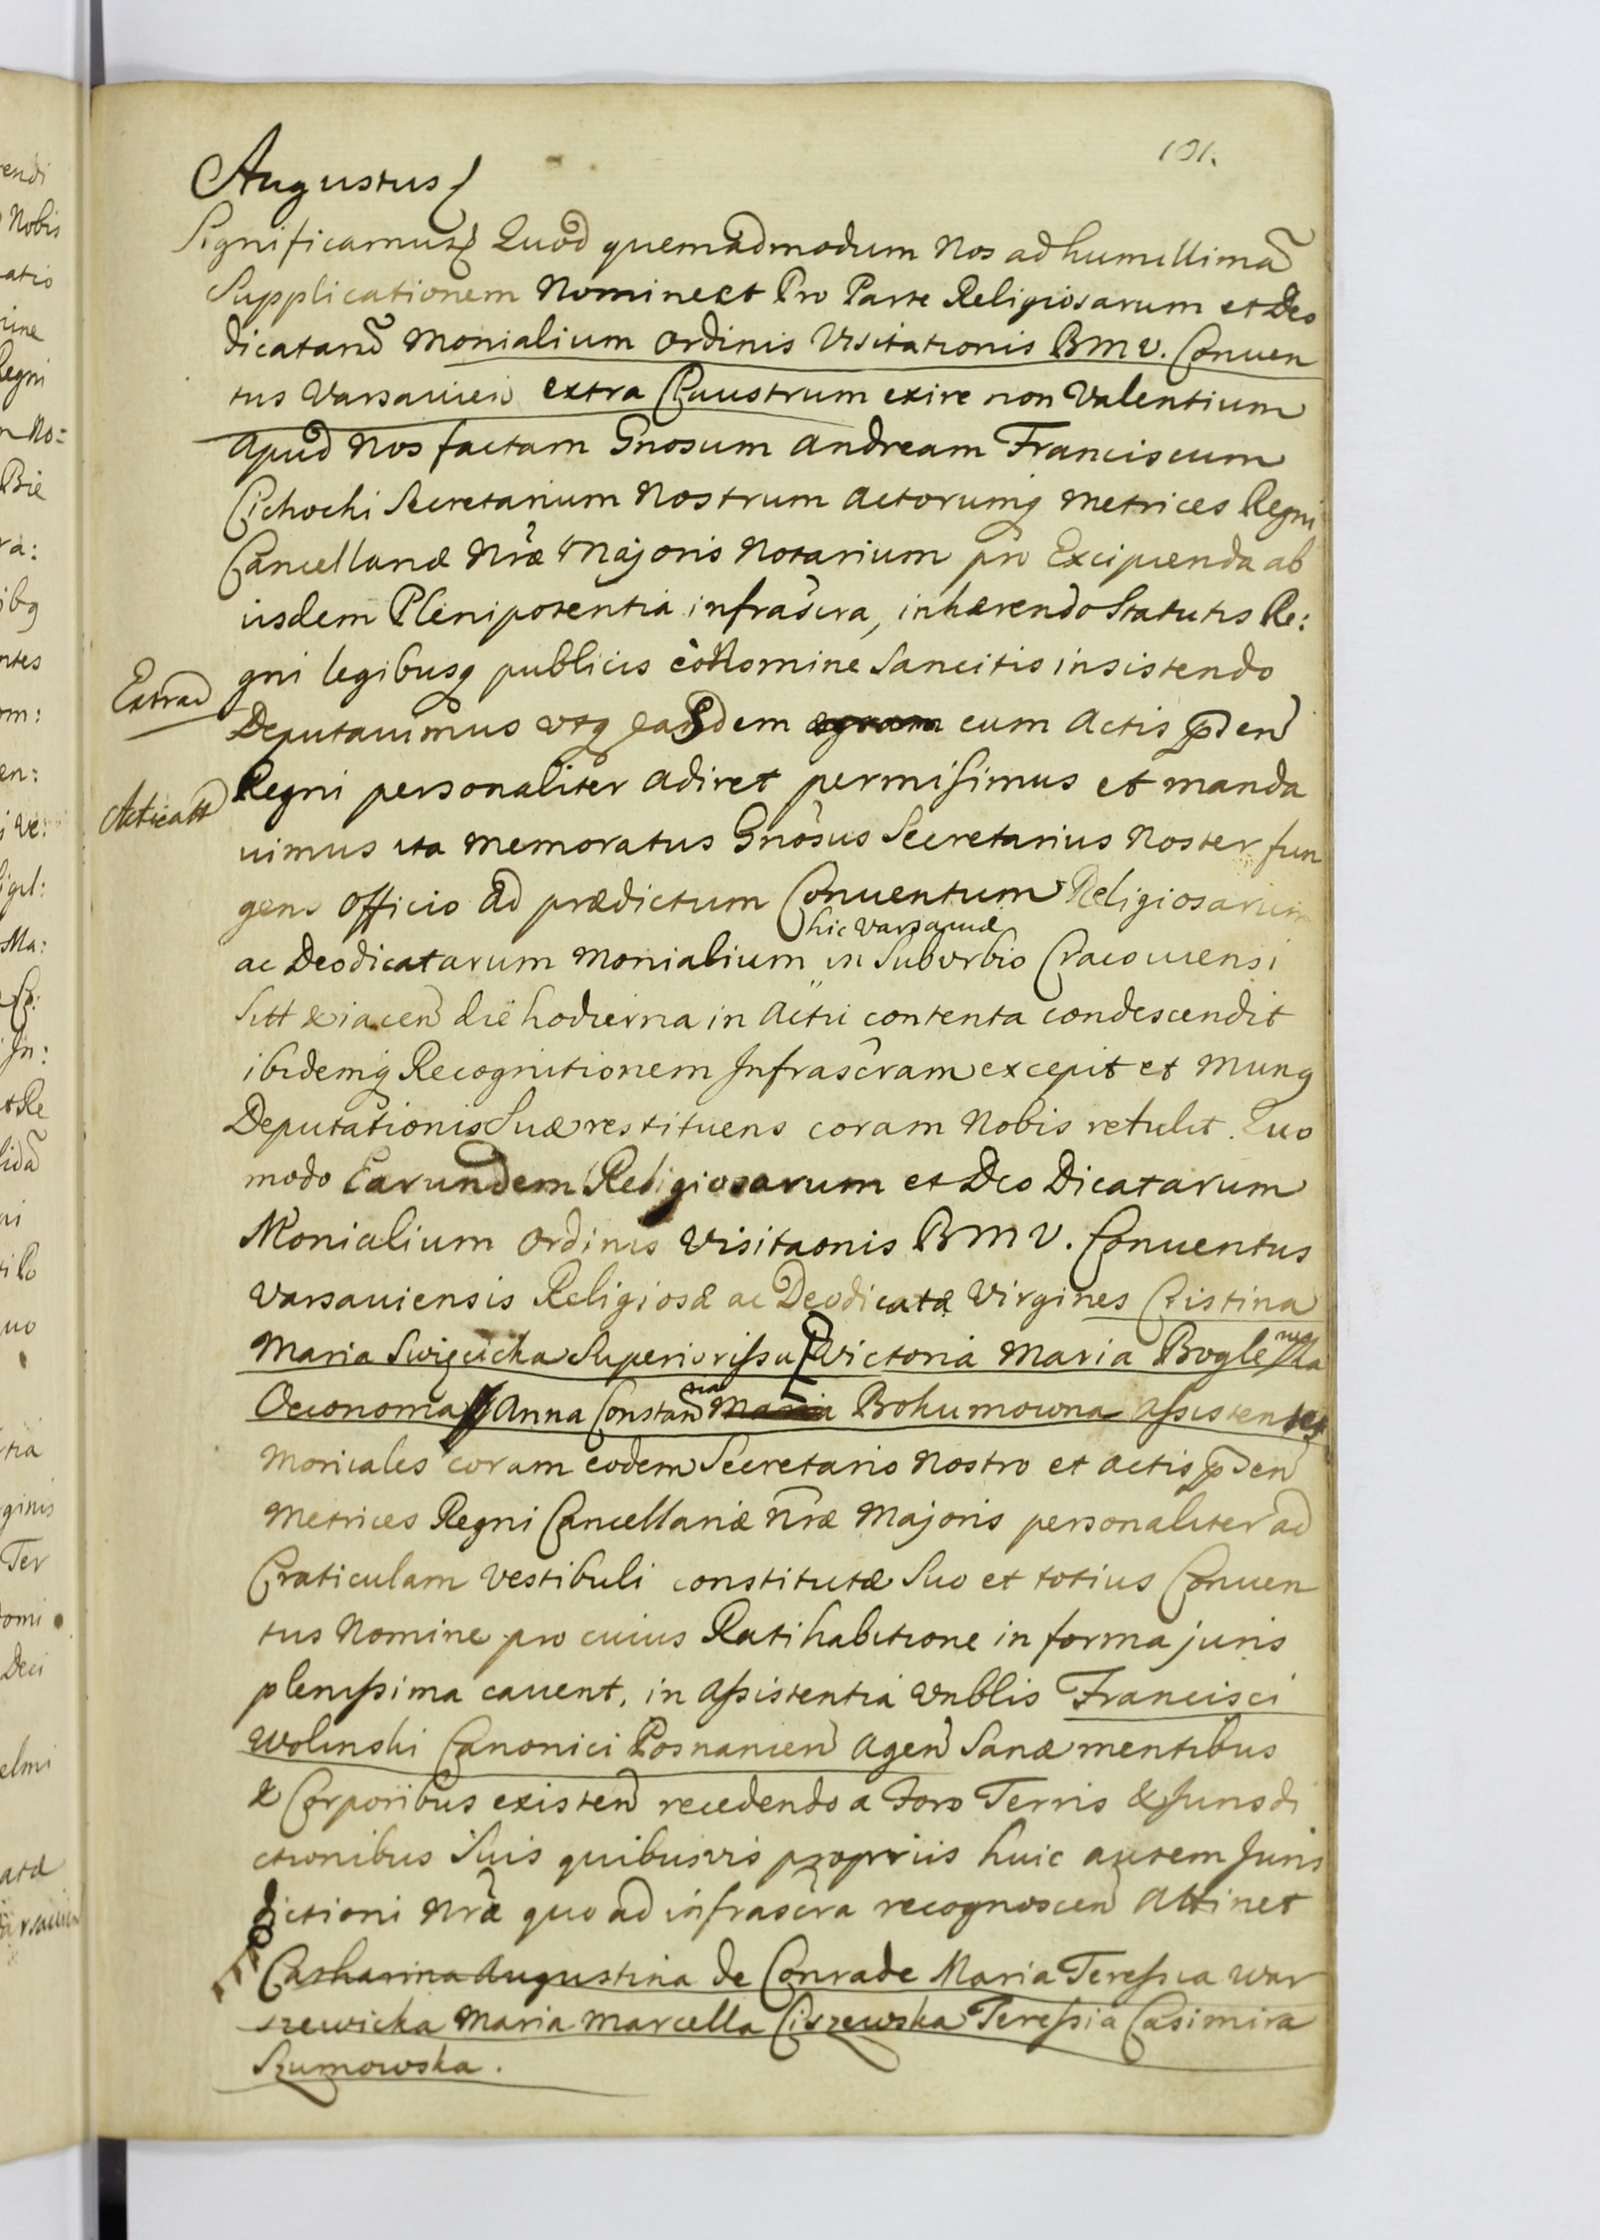 101.
Augustus
Significamus Quod quemadmodum Nos ad humillimã
Supplicationem Nomine et Pro Parte Religiosarum et Deo
dicatarũ Monialium Ordinis Visitationis B M V. Conuen
tus Varsauien extra Claustrum exire non Valentium
apud Nos factam Gnosum Andream Franciscum
Cichocki Secretarium Nostrum Actorumq Metrices Regni
Cancellariæ Nræ Majoris Notarium pro Excipienda ab
iisdem Plenipotentia infrascra, inhærendo Statutis Re:
gni legibusq publicis eo Nomine Sancitis insistendo
Extrad
Deputauimus utq easdem cum Actis pñden
Regni personaliter adiret permisimus et manda
Acticatt
uimus ita memoratus Gnosus Secretarius Noster fun
gens Officio ad prædictum Conuentum Religiosarum
hic Varsauiæ
ac Deodicatarum Monialium in Suburbio Cracouiensi
Sitt & iacen die hodierna in Actu contenta condescendit
ibidemq Recognitionem Infrascram excepit et Munq
Deputationis Suæ restituens coram Nobis retulit. Quo
modo Earundem Religiosarum et Deo Dicatarum
Monialium Ordinis Visitaonis B M V. Conuentus
Varsauiensis Religiosæ ac Deodicatæ Virgines Cristina
Maria Swięcicka Superiorissa Victoria Maria Bogle
Oeconoma Anna Constan Maria Bohumowna Assistentes
Moniales coram eodem Secretario Nostro et Actis pñden
Metrices Regni Cancellariæ Nræ Majoris personaliter ad
Craticulam Vestibuli constitutæ Suo et totius Conuen
tus Nomine pro cuius Ratihabitione in forma juris
plenissima cauent, in Assistentia Vnblis Francisci
Wolinski Canonici Posnanien Agen Sanæ mentibus
& Corporibus existen recedendo a Foro Terris & Jurisdi
ctionibus Suis quibusvis proprÿs huic autem Juris
dictioni Nræ quo ad infrascra recognoscen Attinet
Catharina Augustina de Conrade Maria Teressia War
szewicka Maria Marcella Ciszewska Teressia Casimira
Szumowska.